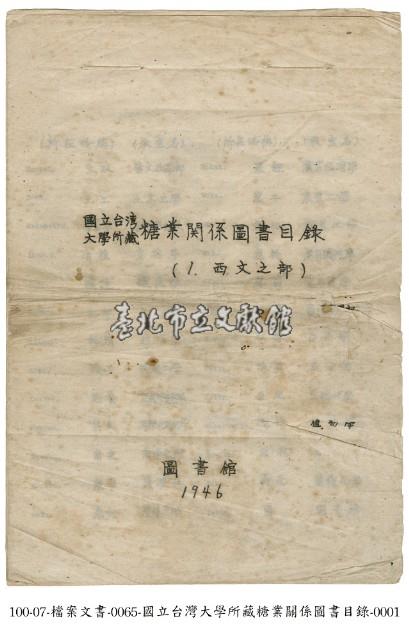 國立台湾
大學所藏 糖業関係圖書目錄
(1. 西文之部)
臺北市立文獻館
圖書館
1946
100-07-檔案文書-0065-國立台灣大學所藏糖業關係圖書目錄-0001